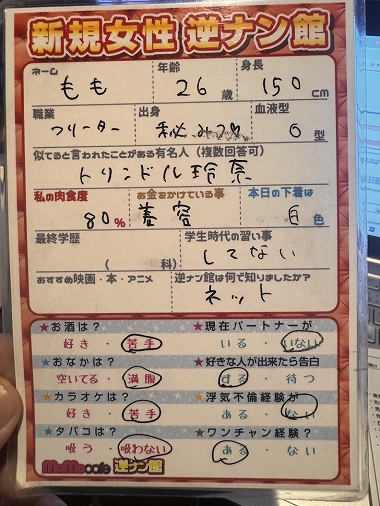 新規女性 逆ナン館
ネーム 年齢 身長
もも 26歳 150cm
職業 出身 血液型
フリーター 秘みつ O型
似てると言われたことがある有名人(複数回答可)
トリンドル玲奈
私の肉食度 お金をかけている事 本日の下着は
80% 美容 白色
最終学歴 学生時代の習い事
( 科) してない
おすすめ映画・本・アニメ 逆ナン館は何で知りましたか?
ネット
★お酒は? ★現在パートナーが
好き・苦手 いる・いない
★おなかは? ★好きな人が出来たら告白
空いてる・満腹 する・待つ
★カラオケは? ★浮気不倫経験が
好き・苦手 ある・ない
★タバコは? ★ワンチャン経験?
吸う・吸わない ある・ない
MoMocafe 逆ナン館